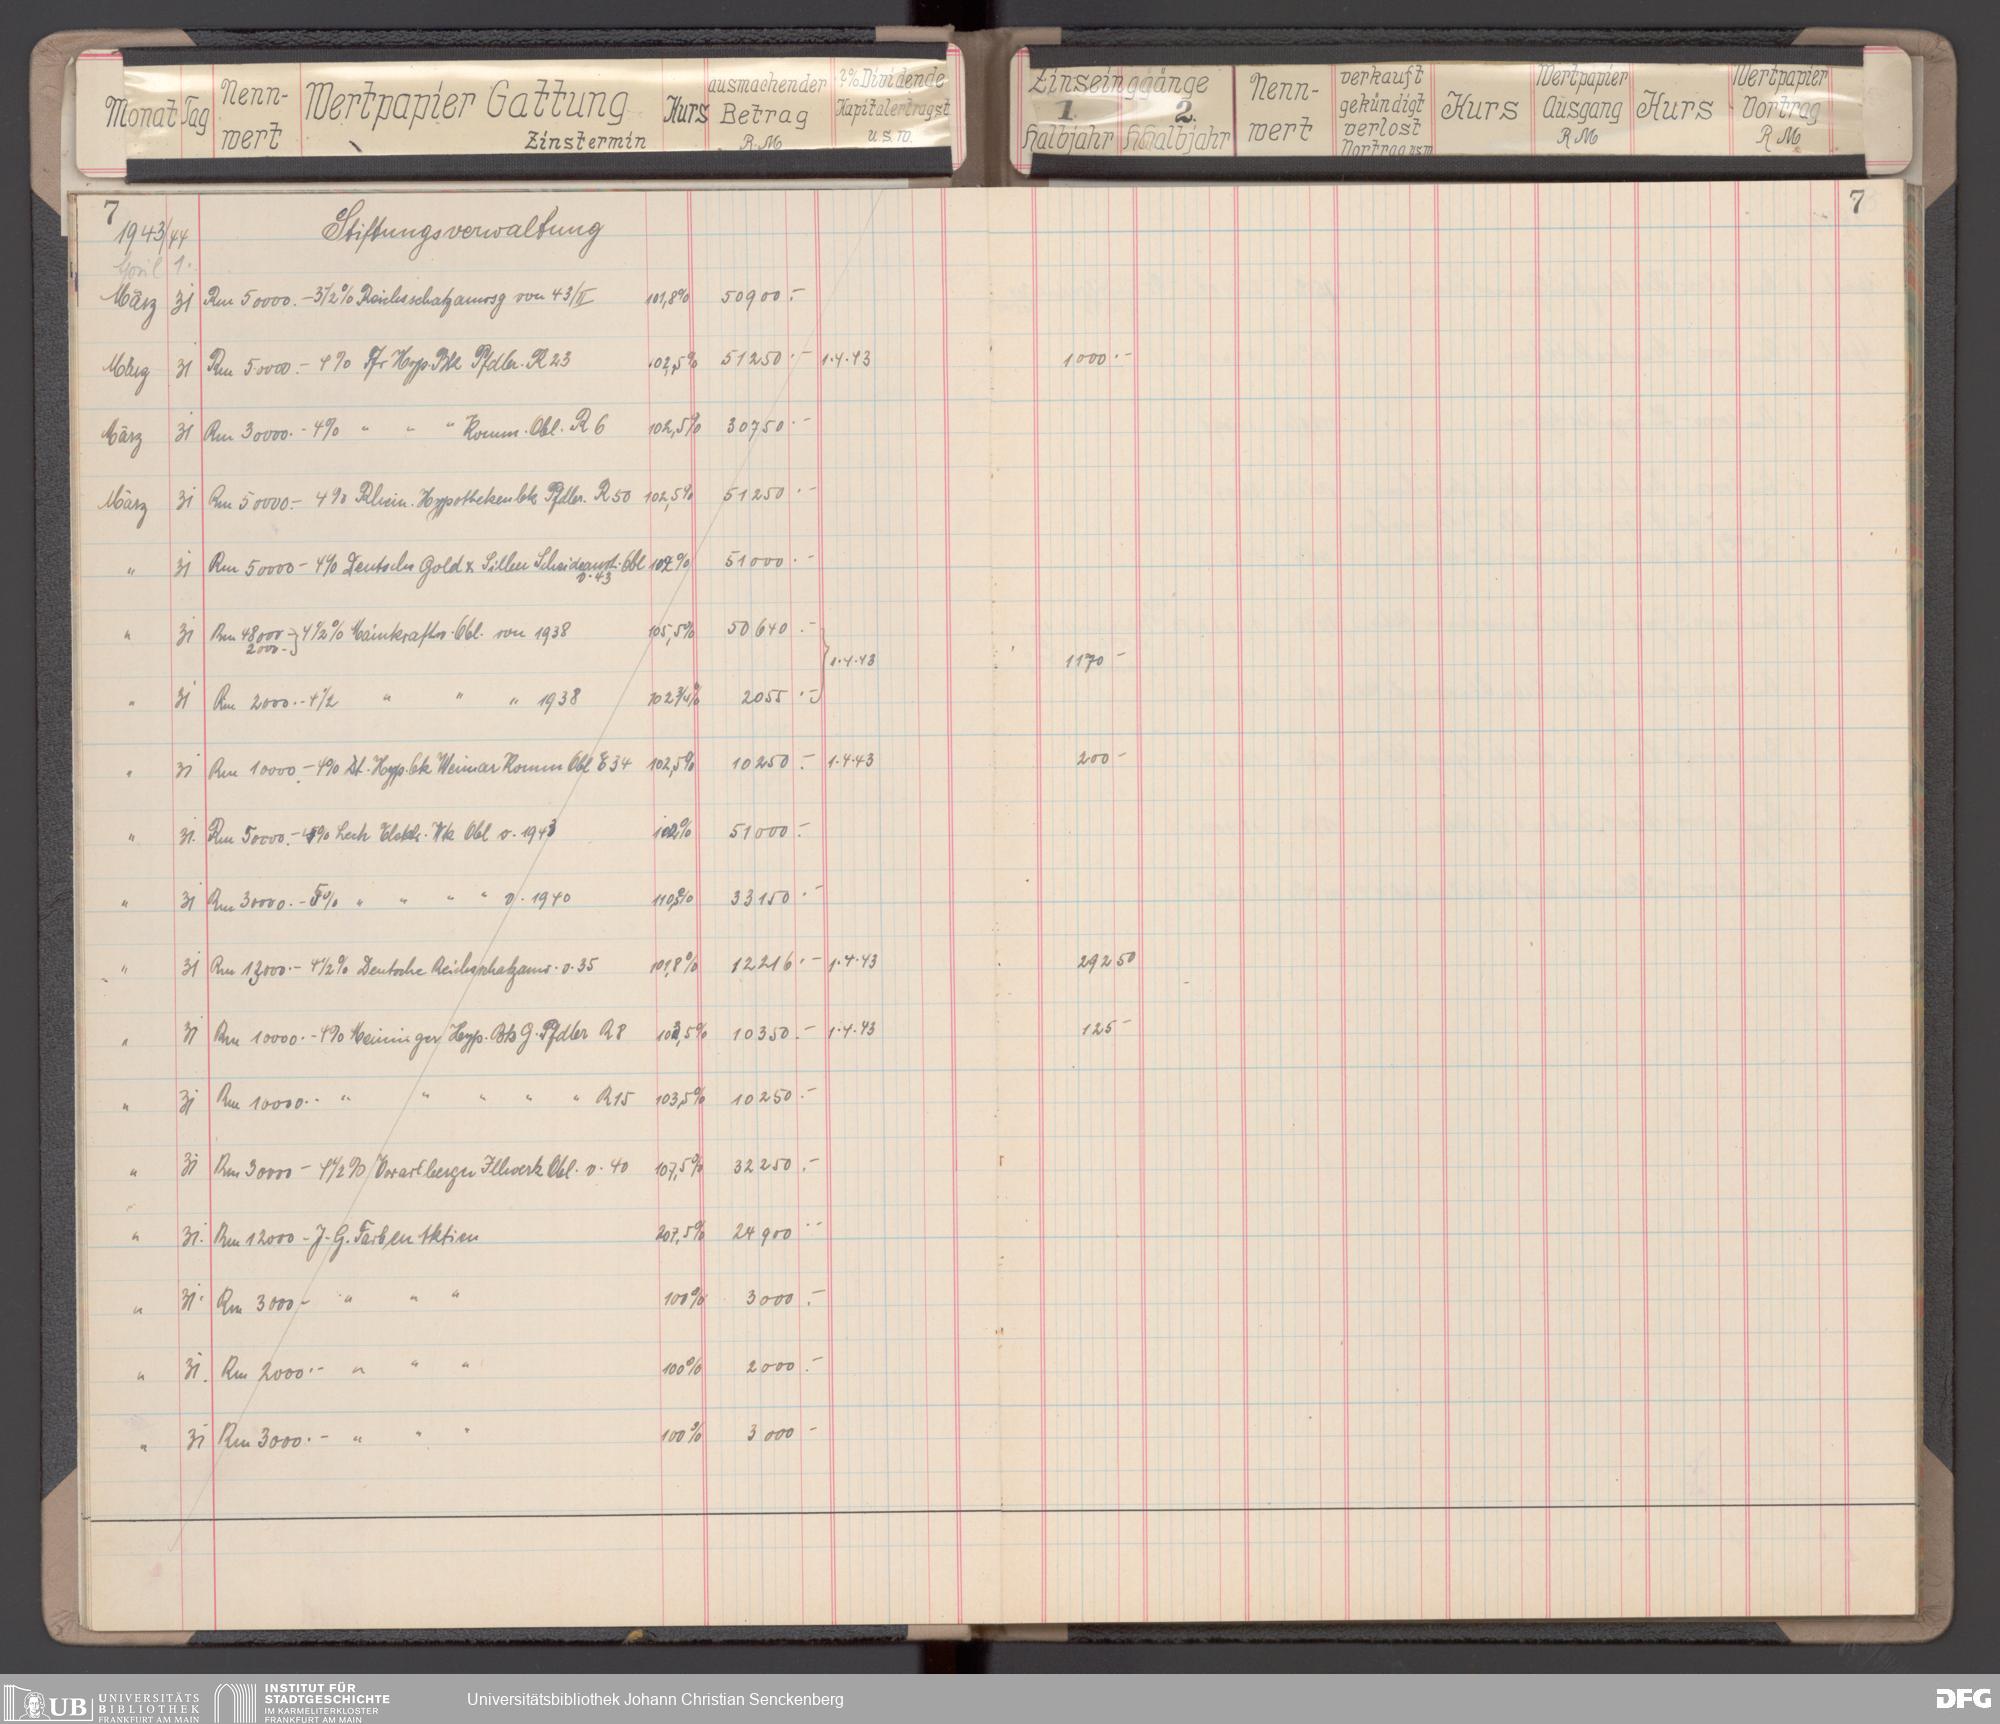 Monat Tag Nenn-wert Wertpapier Gattung Zinstermin Kurs ausmachender Betrag RM 2% Dividende Kapitalertragst u.s.w.
Zinseingänge 1. Halbjahr 2. Halbjahr Nenn-wert verkauft gekündigt verlost Vortrag usw Kurs Wertpapier Ausgang RM Kurs Wertpapier Vortrag RM
7 7
1943/44 Stiftungsverwaltung
April 1.
März 31 Rm 50000.- 3 1/2% Reichsschatzanwsg von 43/II 101,8% 50900.-
März 31 Rm 50000.- 4% Ffr Hyp. Bk Pfdbr. R 23 102,5% 51250.- 1.4.43 1000.-
März 31 Rm 30000.- 4% " " " Komm. Obl. R 6 102,5% 30750.-
März 31 Rm 50000.- 4% Rhein. Hypothekenbk Pfdbr. R 50 102,5% 51250.-
" 31 Rm 50000.- 4% Deutsche Gold & Silber Scheideanst. Obl 102% 51000.-
v. 43
" 31 Rm 48000.- 4 1/2% Mainkraftw. Obl. von 1938 105,5% 50640.-
2000.- 1.4.43 1170.-
" 31 Rm 2000.- 4 1/2 " " " 1938 102 3/4% 2055.-
" 31 Rm 10000.- 4% Dt. Hyp. bk Weimar Komm Obl E 34 102,5% 10250.- 1.4.43 200.-
" 31. Rm 50000.- 4% Lech Elektr. Wk Obl v. 1943 102% 51000.-
" 31 Rm 30000.- 5% " " " " v. 1940 110,5% 33150.-
" 31 Rm 12000.- 4 1/2% Deutsche Reichsschatzanw. v. 35 101,8% 12216.- 1.4.43 292 50
" 31 Rm 10000.- 4% Meininger Hyp. Bk G. Pfdbr R 8 103,5% 10350.- 1.4.43 125.-
" 31 Rm 10000.- " " " " " R 15 103,5% 10250.-
" 31 Rm 30000.- 4 1/2% Vorarlberger Illwerk Obl. v. 40 107,5% 32250.-
" 31. Rm 12000.- J. G. Farben Aktien 207,5% 24900.-
" 31. Rm 3000.- " " " 100% 3000.-
" 31. Rm 2000.- " " " 100% 2000.-
" 31 Rm 3000.- " " " 100% 3000.-
UB UNIVERSITÄTS
BIBLIOTHEK
FRANKFURT AM MAIN
INSTITUT FÜR
STADTGESCHICHTE
IM KARMELITERKLOSTER
FRANKFURT AM MAIN
Universitätsbibliothek Johann Christian Senckenberg
DFG